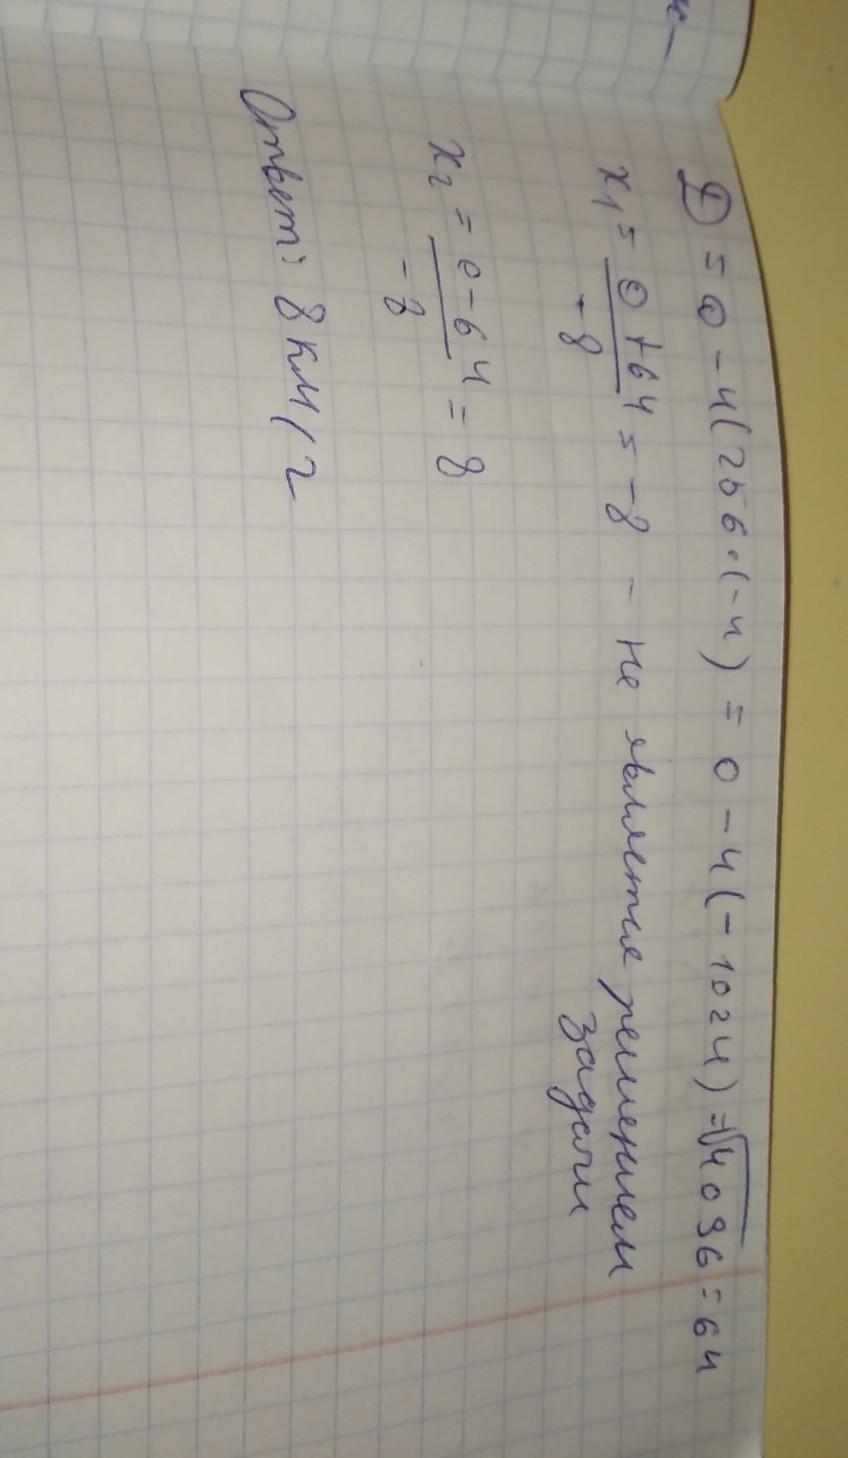 D = 0 - 4(256·(-4) = 0 - 4(-1024) = √4096 = 64
x₁ = (0+64)/(-8) = -8 - не является решением
задачи
x₂ = (0-64)/(-8) = 8
Ответ: 8 км/г